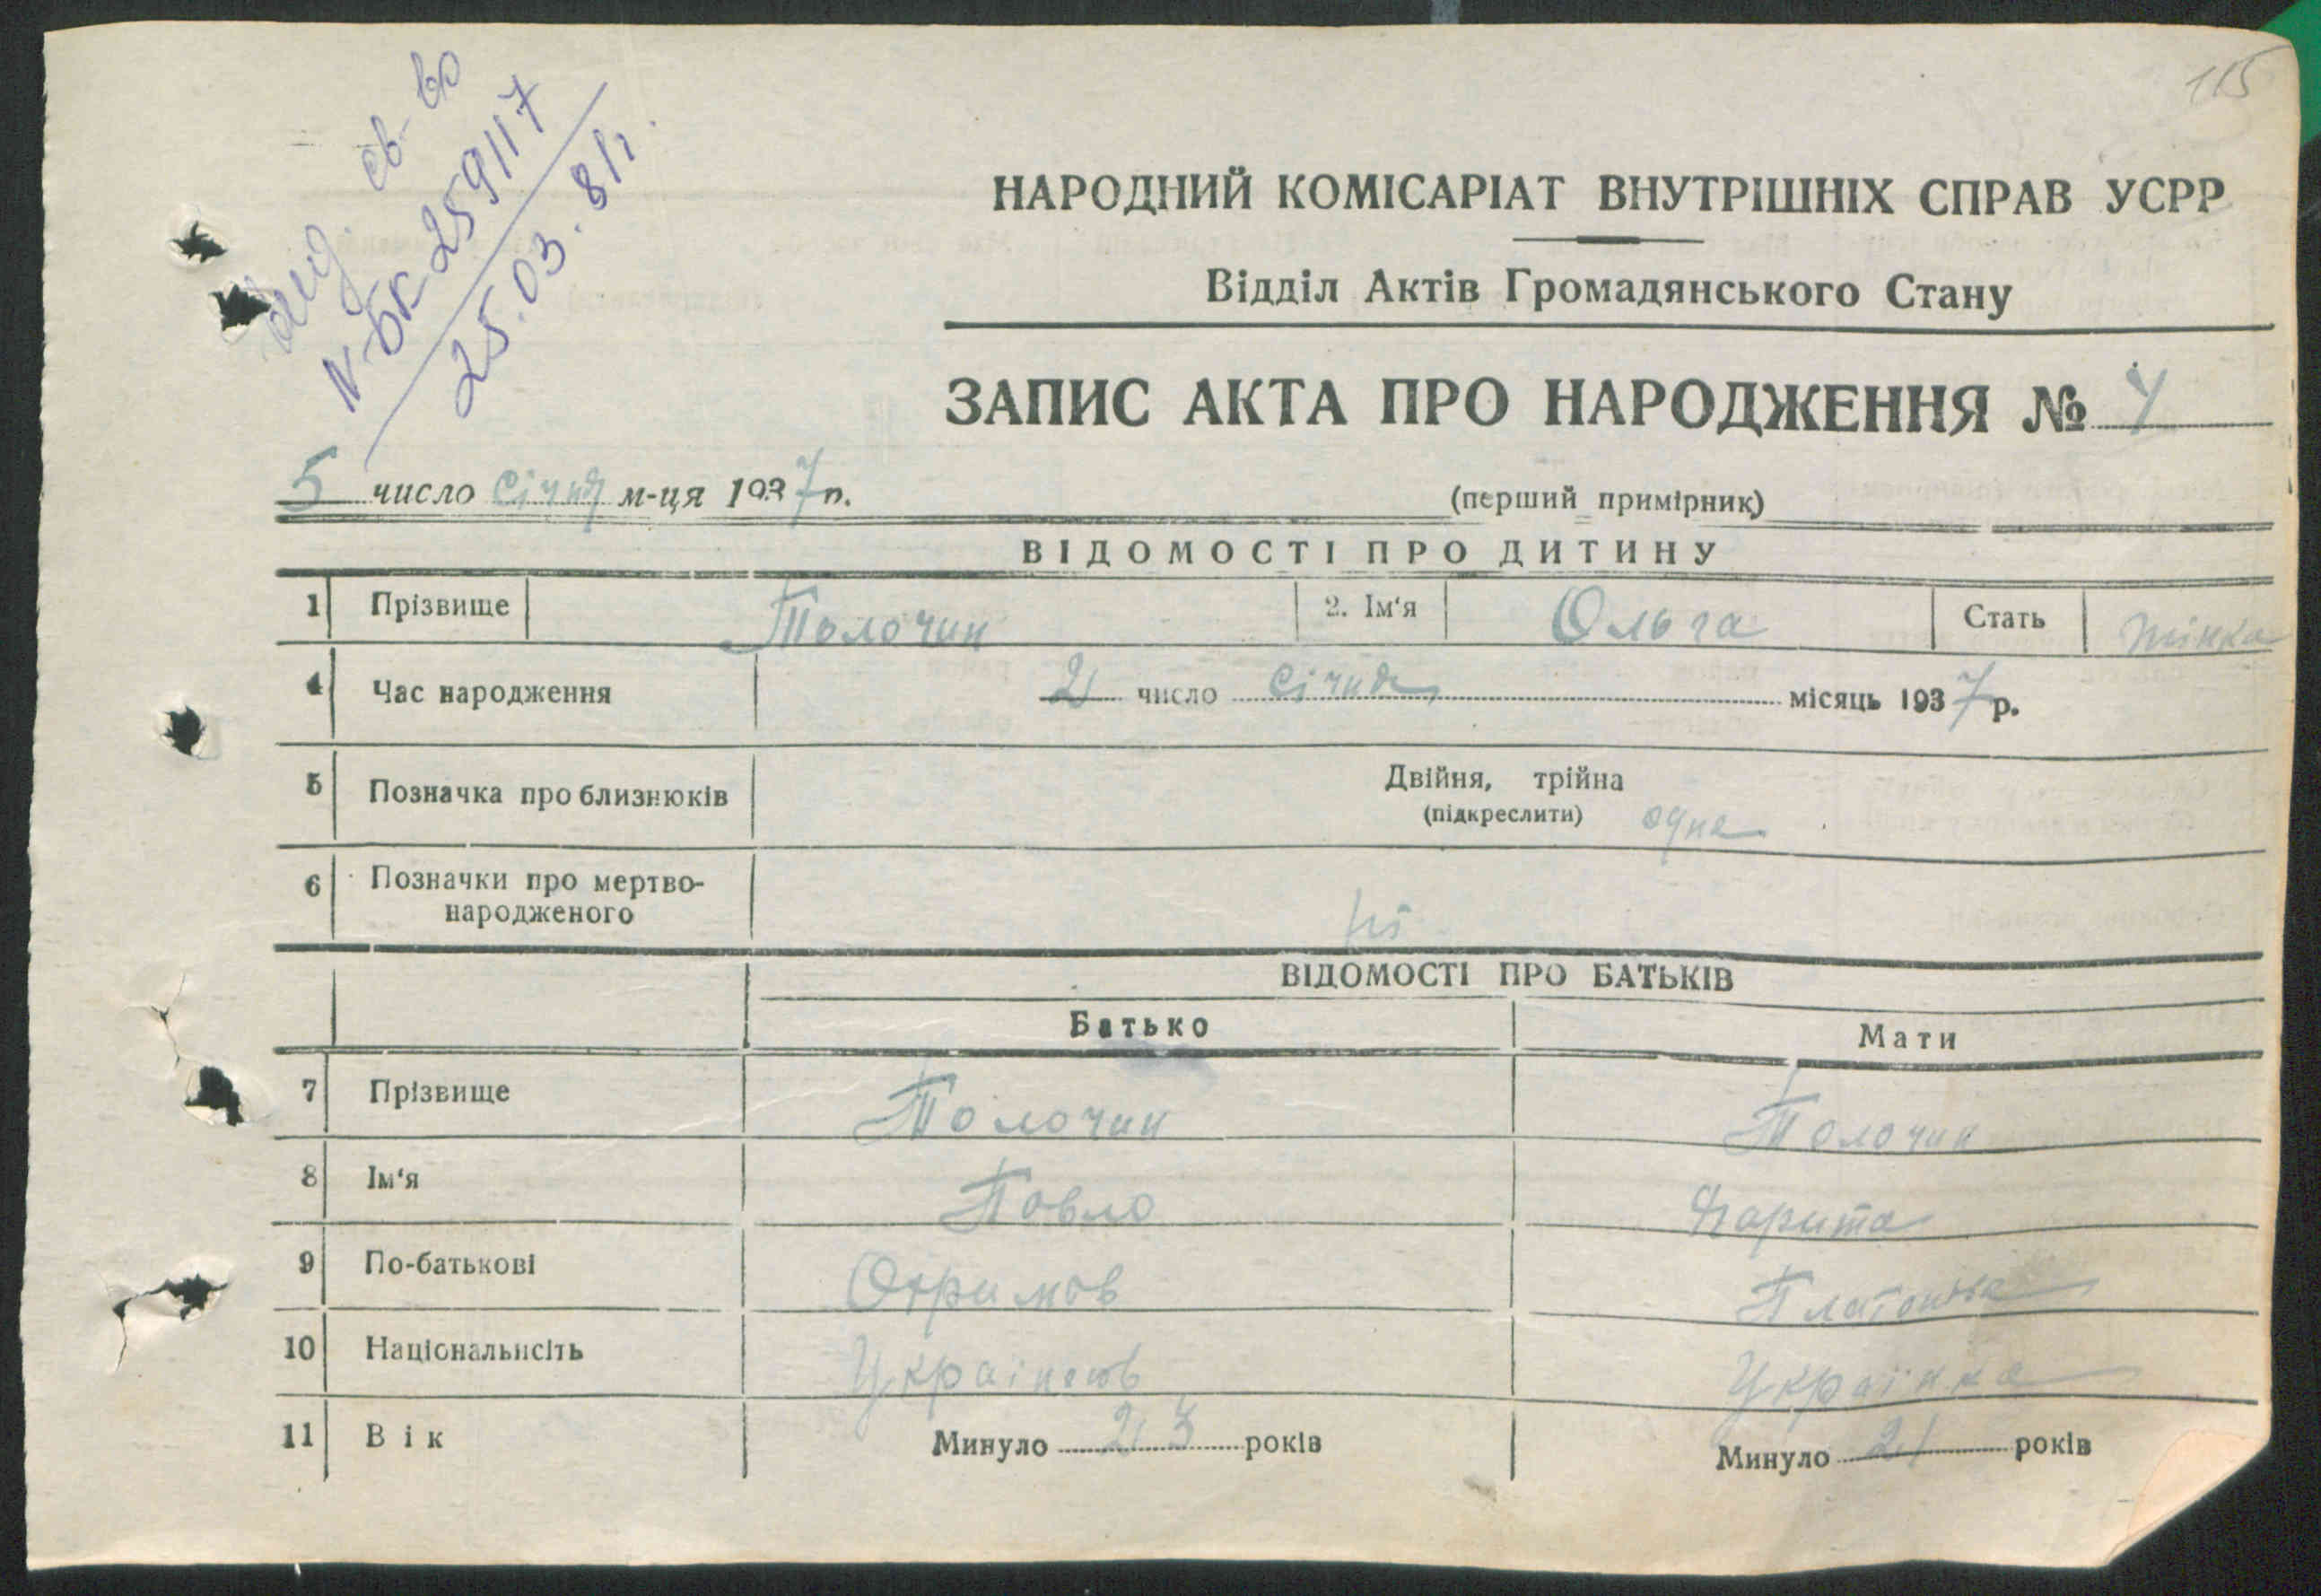 115
св-во
N БК 259117
25.03.81г.
НАРОДНИЙ КОМІСАРІАТ ВНУТРІШНІХ СПРАВ УСРР
Відділ Актів Громадянського Стану
ЗАПИС АКТА ПРО НАРОДЖЕННЯ № 4
5 число січня м-ця 1937 р.
(перший примірник)
ВІДОМОСТІ ПРО ДИТИНУ
1 Прізвище Толочин 2. Ім'я Ольга Стать жінка
4 Час народження 2 число січня місяць 1937 р.
5 Позначка про близнюків Двійня, трійна
(підкреслити) одне
6 Позначки про мертво-
народженого ні
ВІДОМОСТІ ПРО БАТЬКІВ
Батько Мати
7 Прізвище Толочин Толочин
8 Ім'я Повло Харита
9 По-батькові Охримов Платонова
10 Національнсіть Українець Українка
11 Вік Минуло 23 років Минуло 21 років